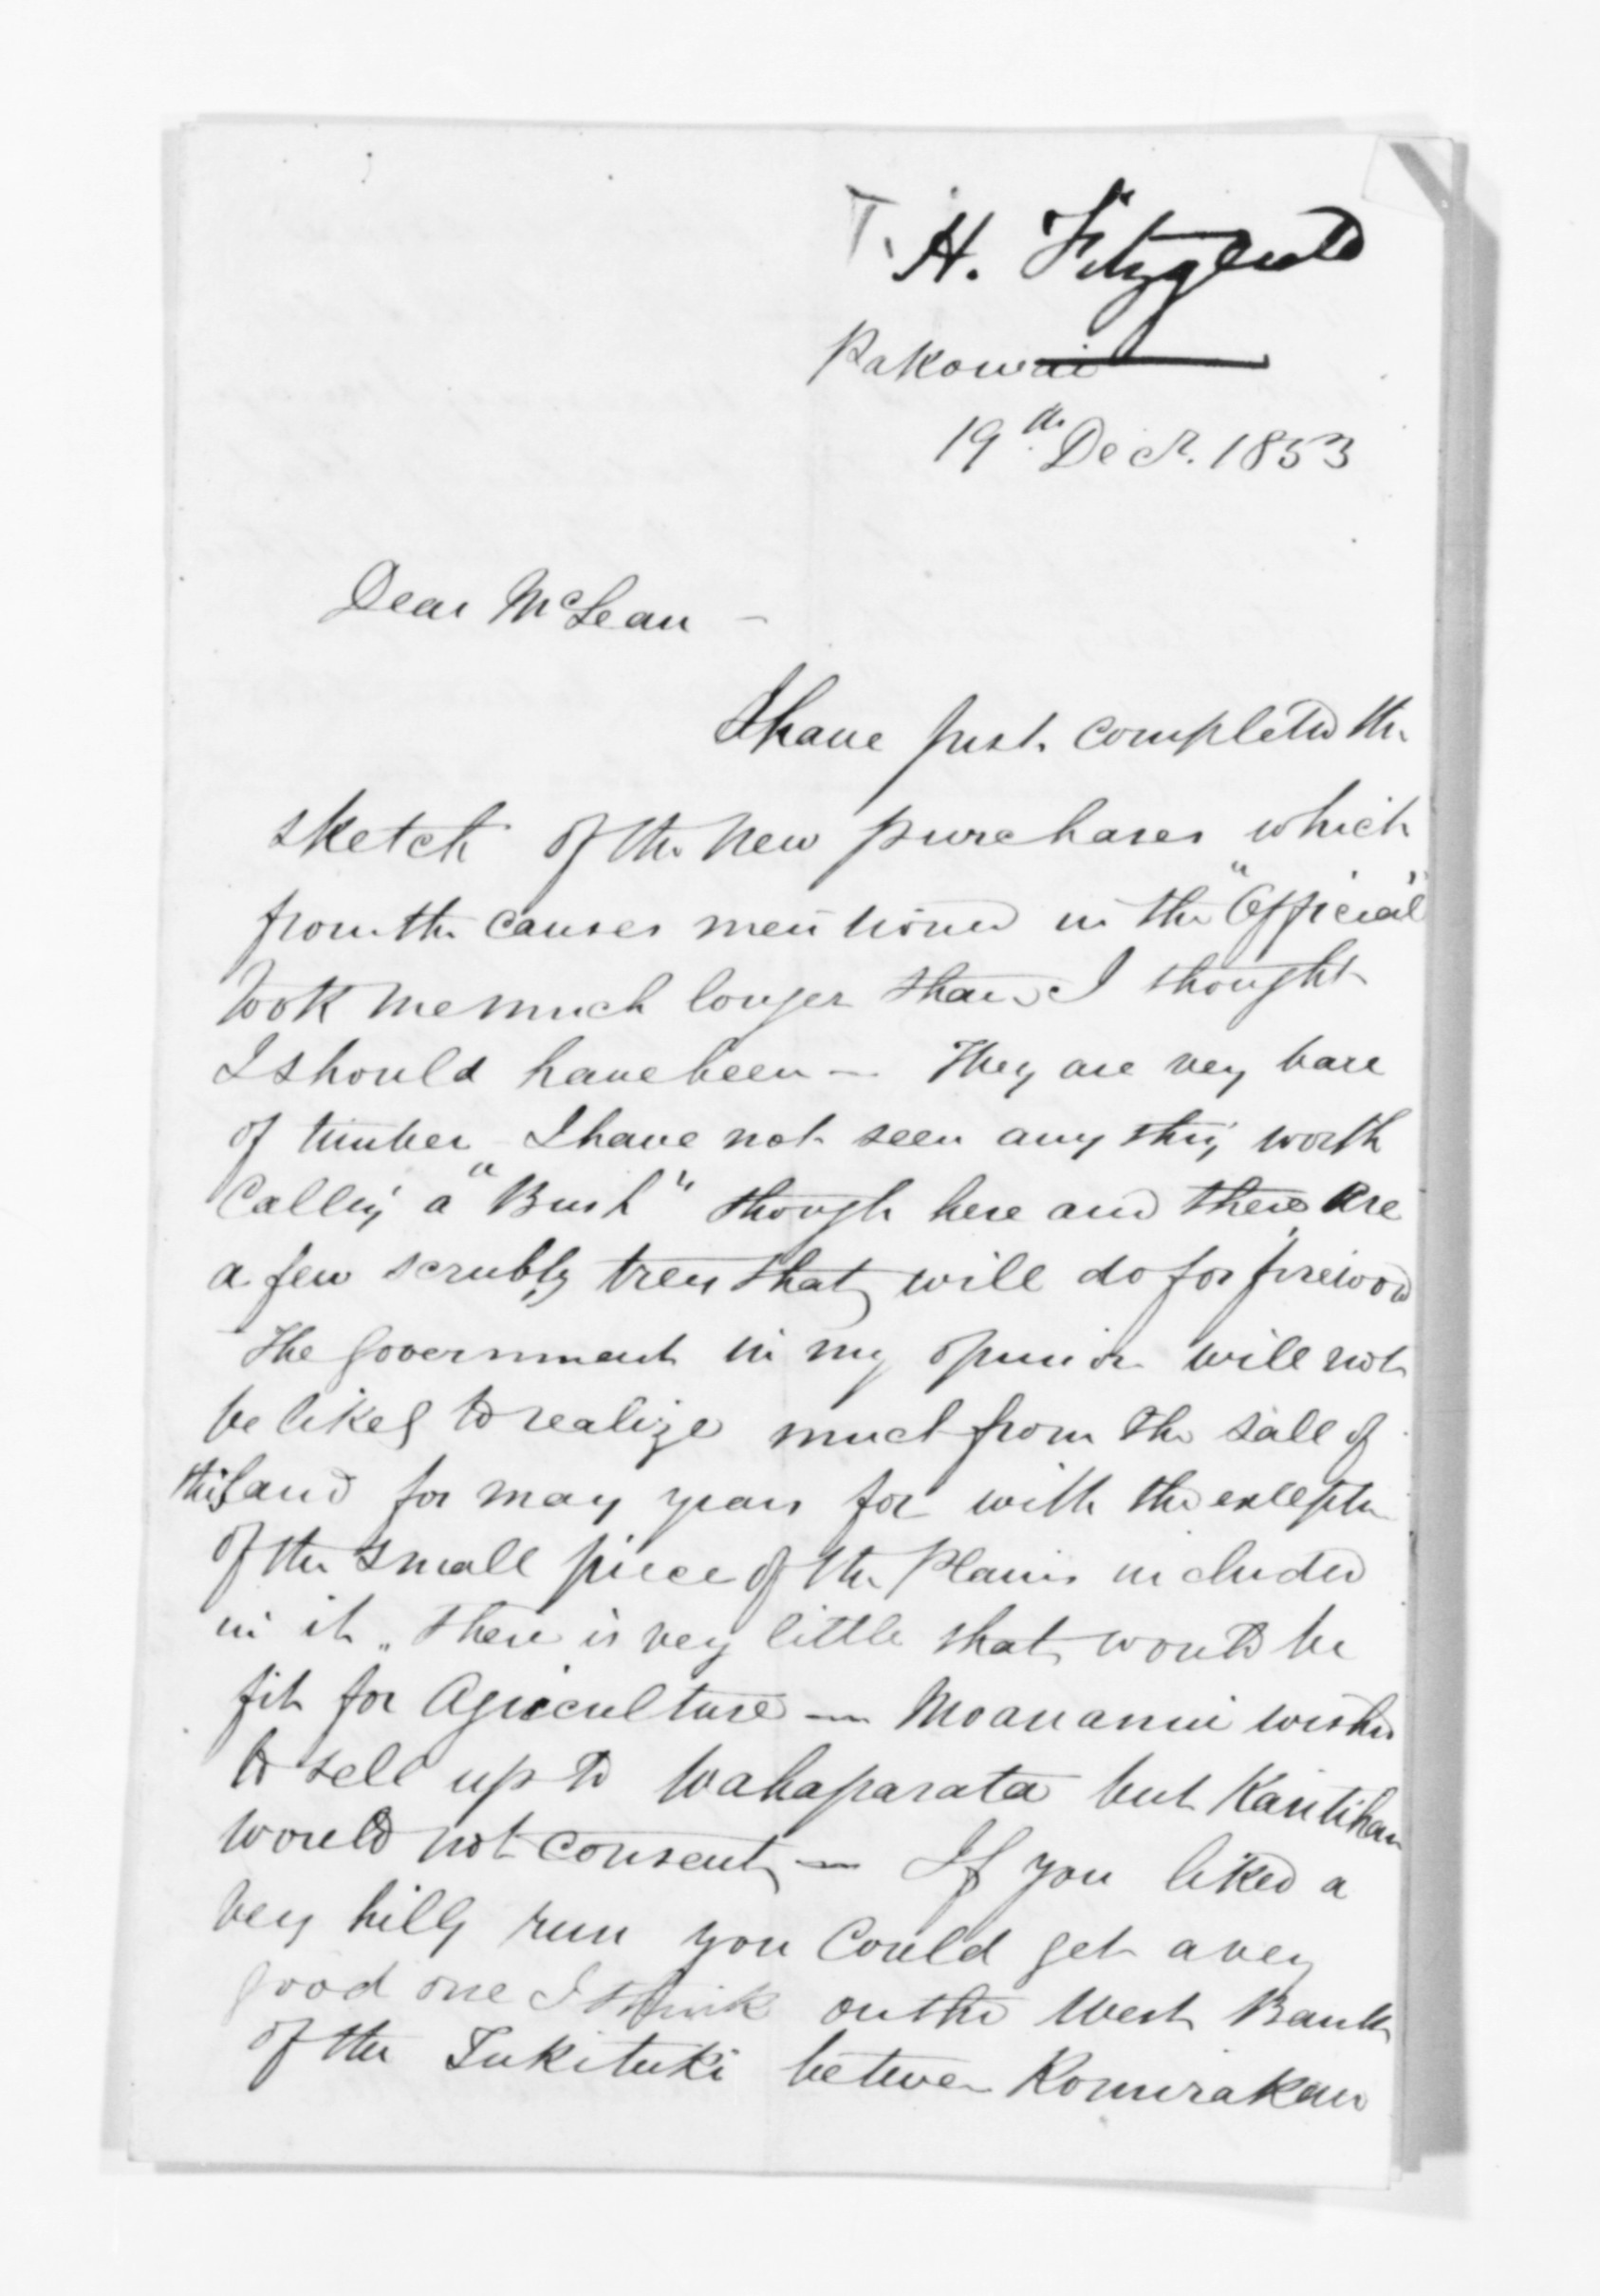 T. H. Fitzgerald
Pakowai
19th Decr. 1853
Dear McLean —
I have just completed the
sketch of the new purchases which
from the causes mentioned in the "Official"
took me much longer than I thought
I should have been — They are very bare
of timber I have not seen any thing worth
Calling a "Bush" though here and there are
a few scrubby trees that will do for firewood
The Government in my opinion will not
be likely to realize much from the sale of
this land for many years for with the exception
of the small piece of the Plains included
in it, there is very little that would be
fit for Agriculture — Moananui wished
to sell up to Wahaparata but Karitihana
would not consent — If you liked a
very hilly run you could get a very
good one I think on the West Bank
of the Tukituki between